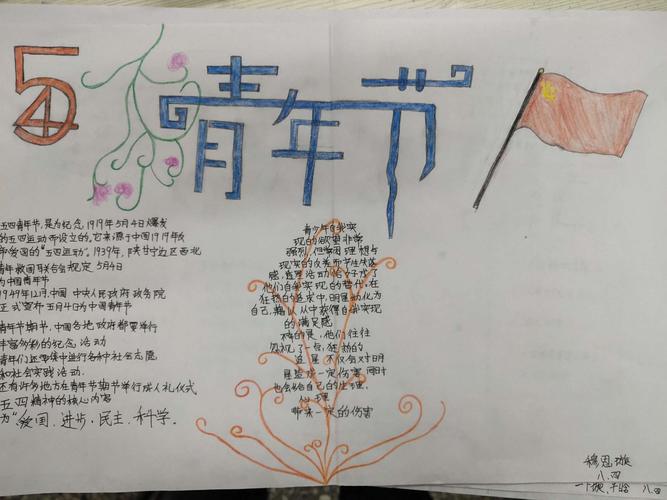 54
青年节
五四青年节,是为纪念1919年5月4日爆发
的五四运动而设立的,它来源于中国1919年反
帝爱国的“五四运动”,1939年,陕甘宁边区西北
青年救国联合会规定5月4日
为中国青年节
1949年12月,中国中央人民政府政务院
正式宣布五月四日为中国青年节
青年节期间,中国各地政府都要举行
丰富多彩的纪念活动
青年们还要集中进行各种社会志愿
和社会实践活动.
还有许多地方在青年节期间举行成人礼仪式
五四精神的核心内容
为“爱国、进步、民主、科学.
青少年自我实
现的欲望非常
强烈,但常因理想与
现实的反差而产生失落
感,追星活动给予成了
他们自我实现的替代,在
狂热的追求中,明星幻化为
自己,确认从中获得自我实现
的满足感
不幸的是,他们往往
忽视了一点,狂热的
追星不仅会对明
星造成一定伤害同时
也会给自己的生理、
心理
带来一定的伤害
穆恩璇
八.四
八.四